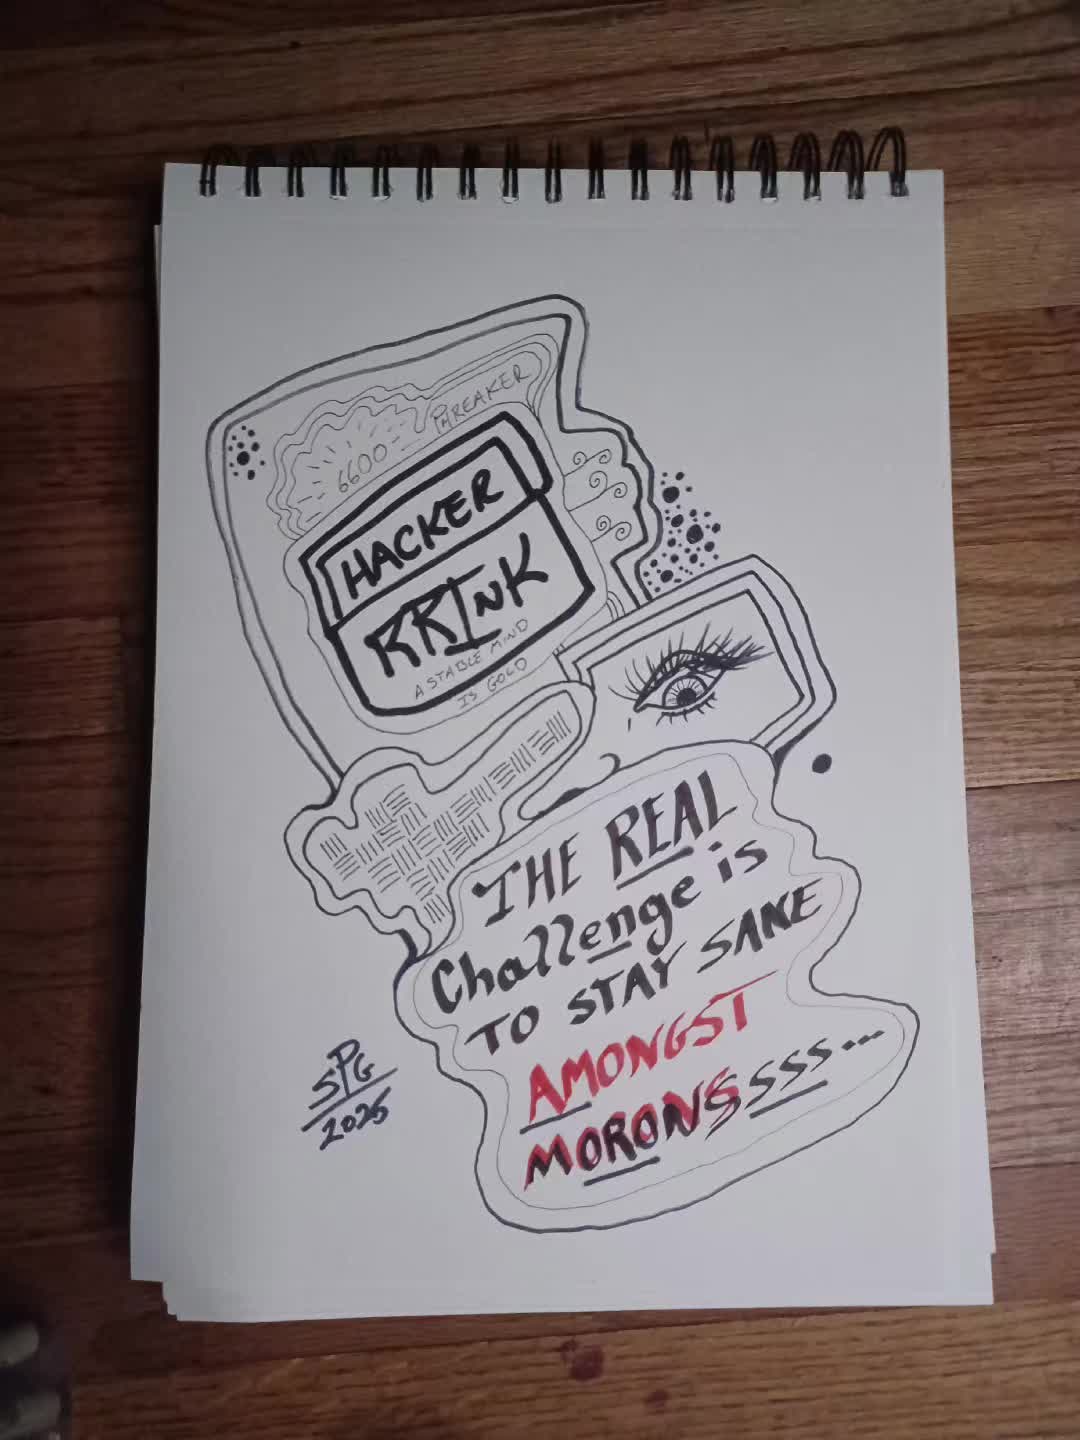 PHREAKER
6600
HACKER
KRINK
A STABLE MIND
IS GOLD
THE REAL
Challenge is
TO STAY SANE
AMONGST
MORONSSSSS...
SPG
2025